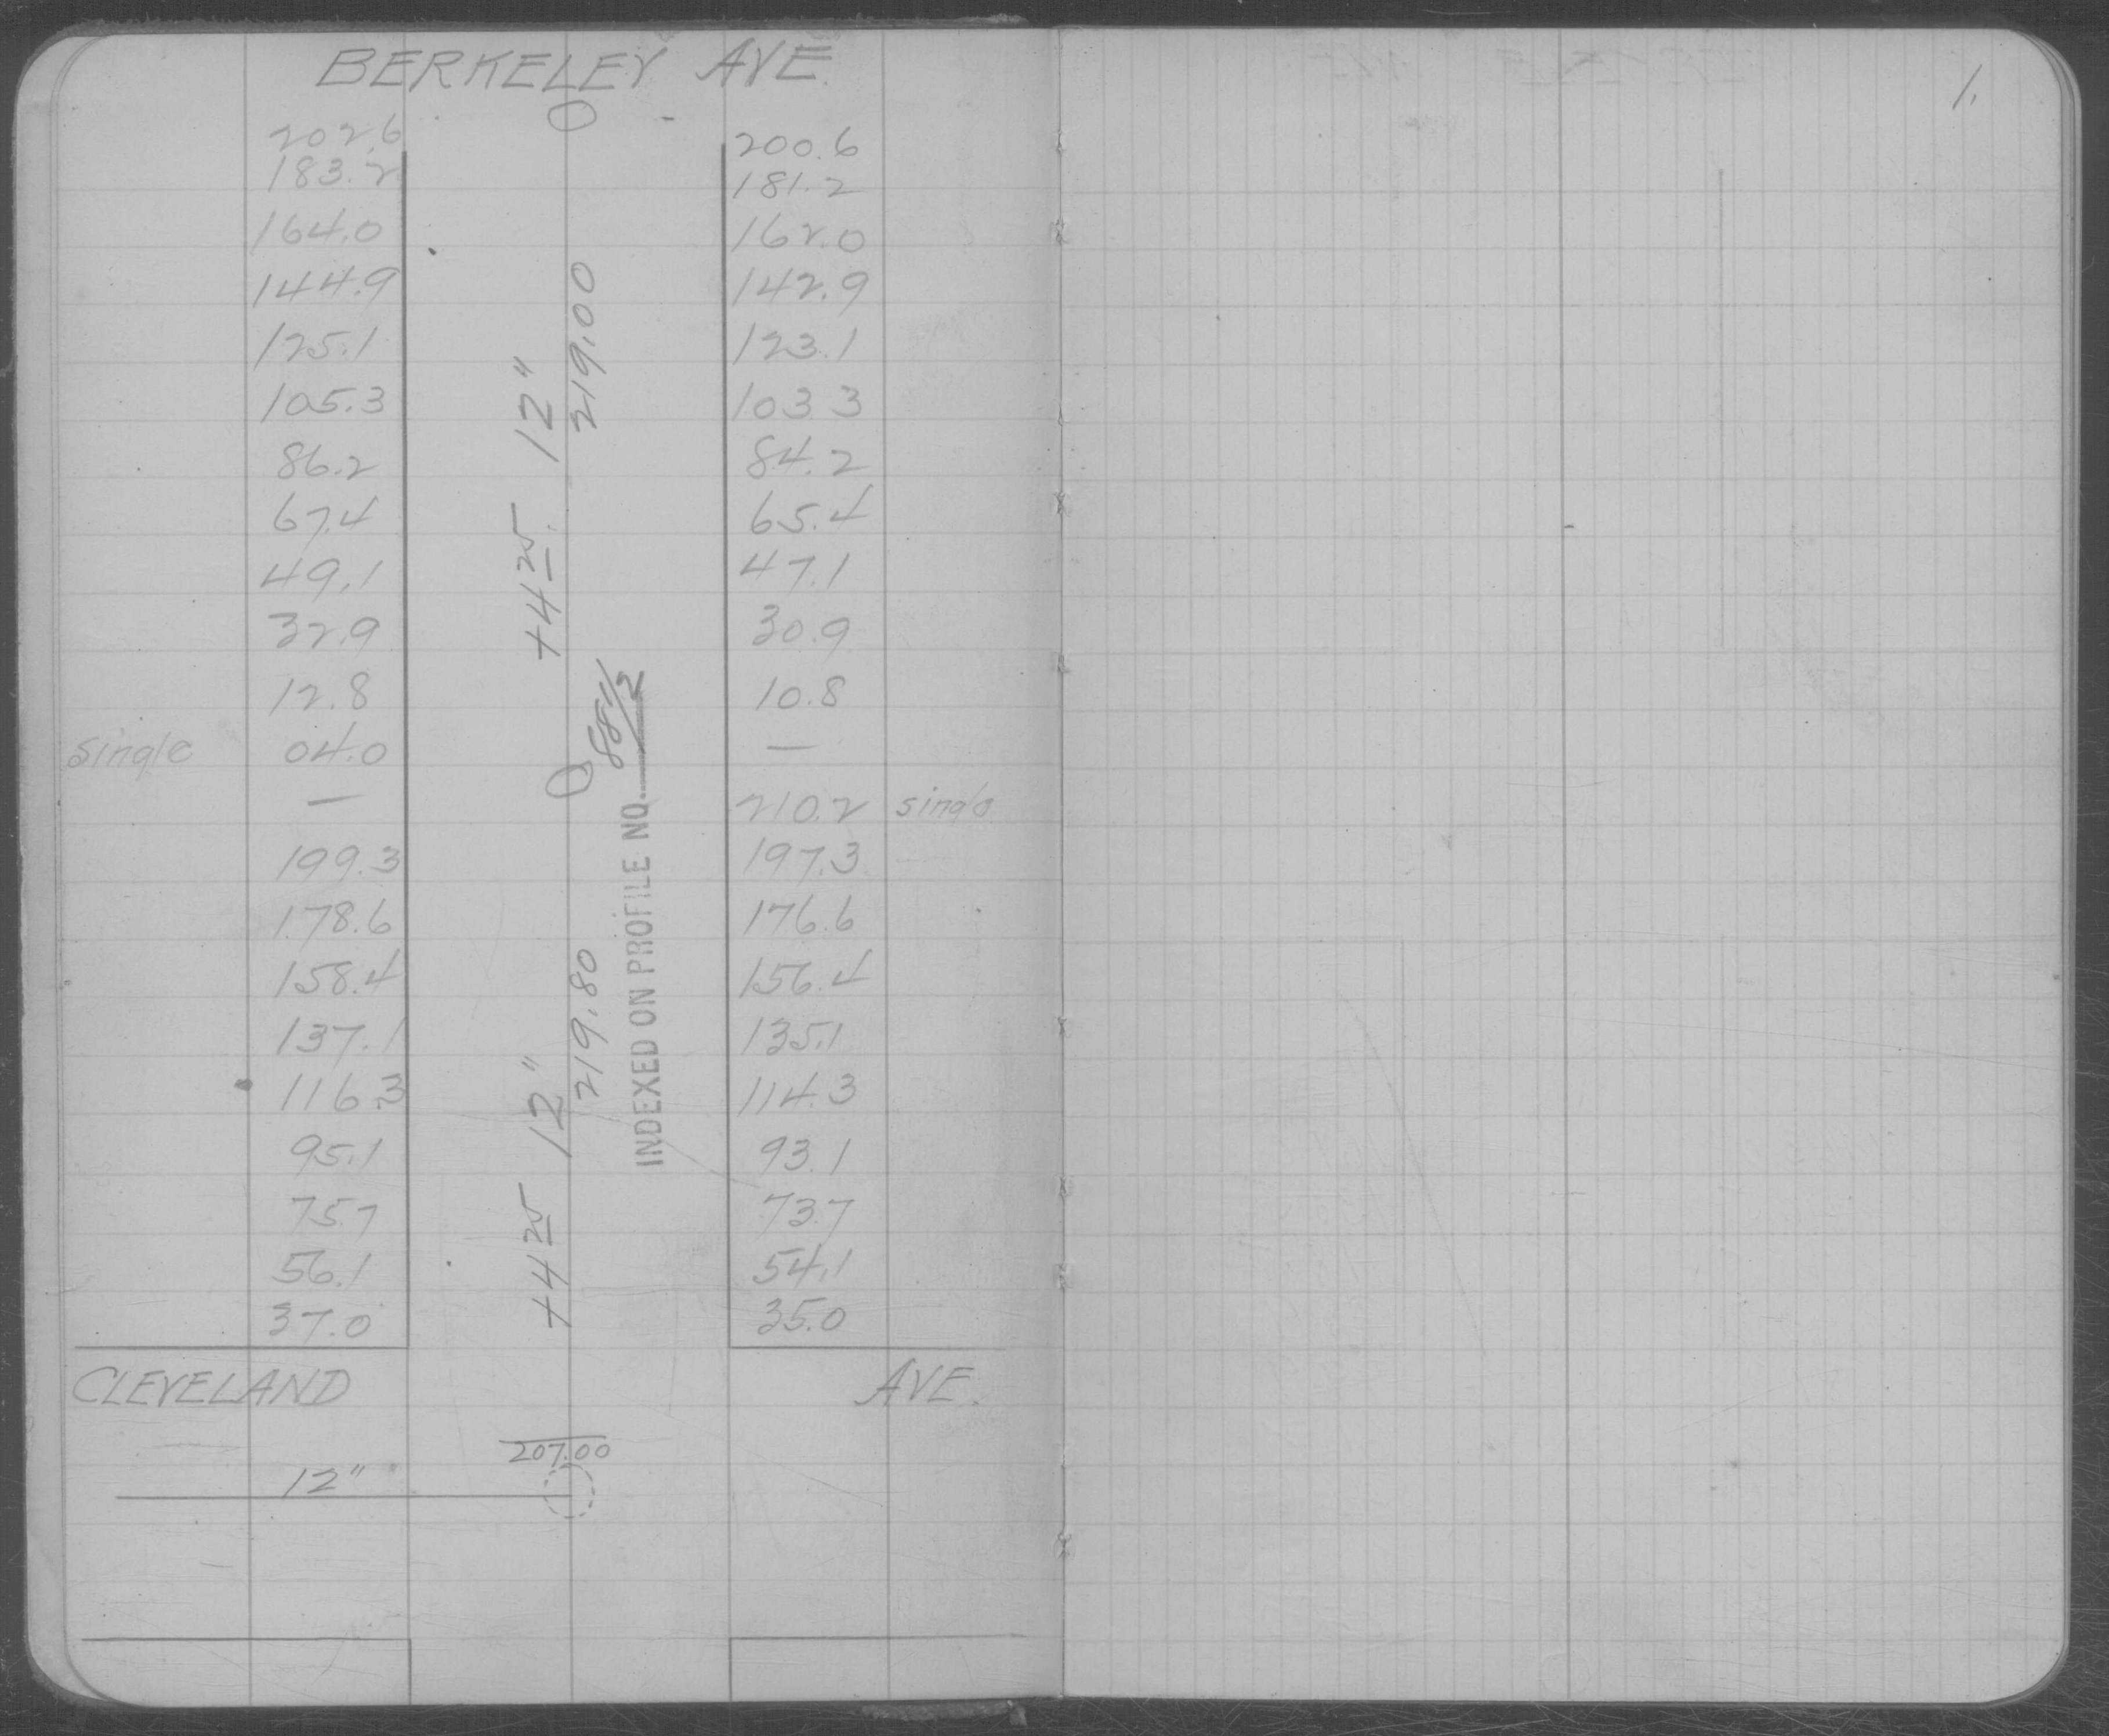 BERKELEY AVE.
1.
202.6 200.6
183.2 181.2
164.0 162.0
144.9 142.9
125.1 123.1
105.3 103.3
86.2 84.2
67.4 65.4
49.1 47.1
32.9 30.9
12.8 10.8
single 04.0 —
— 210.2 single
199.3 197.3
178.6 176.6
158.4 156.4
137.1 135.1
116.3 114.3
95.1 93.1
75.7 73.7
56.1 54.1
37.0 35.0
+4 25 12"
219.00
+4 25 12"
219.80
INDEXED ON PROFILE NO. 881/2
CLEVELAND AVE.
207.00
12"